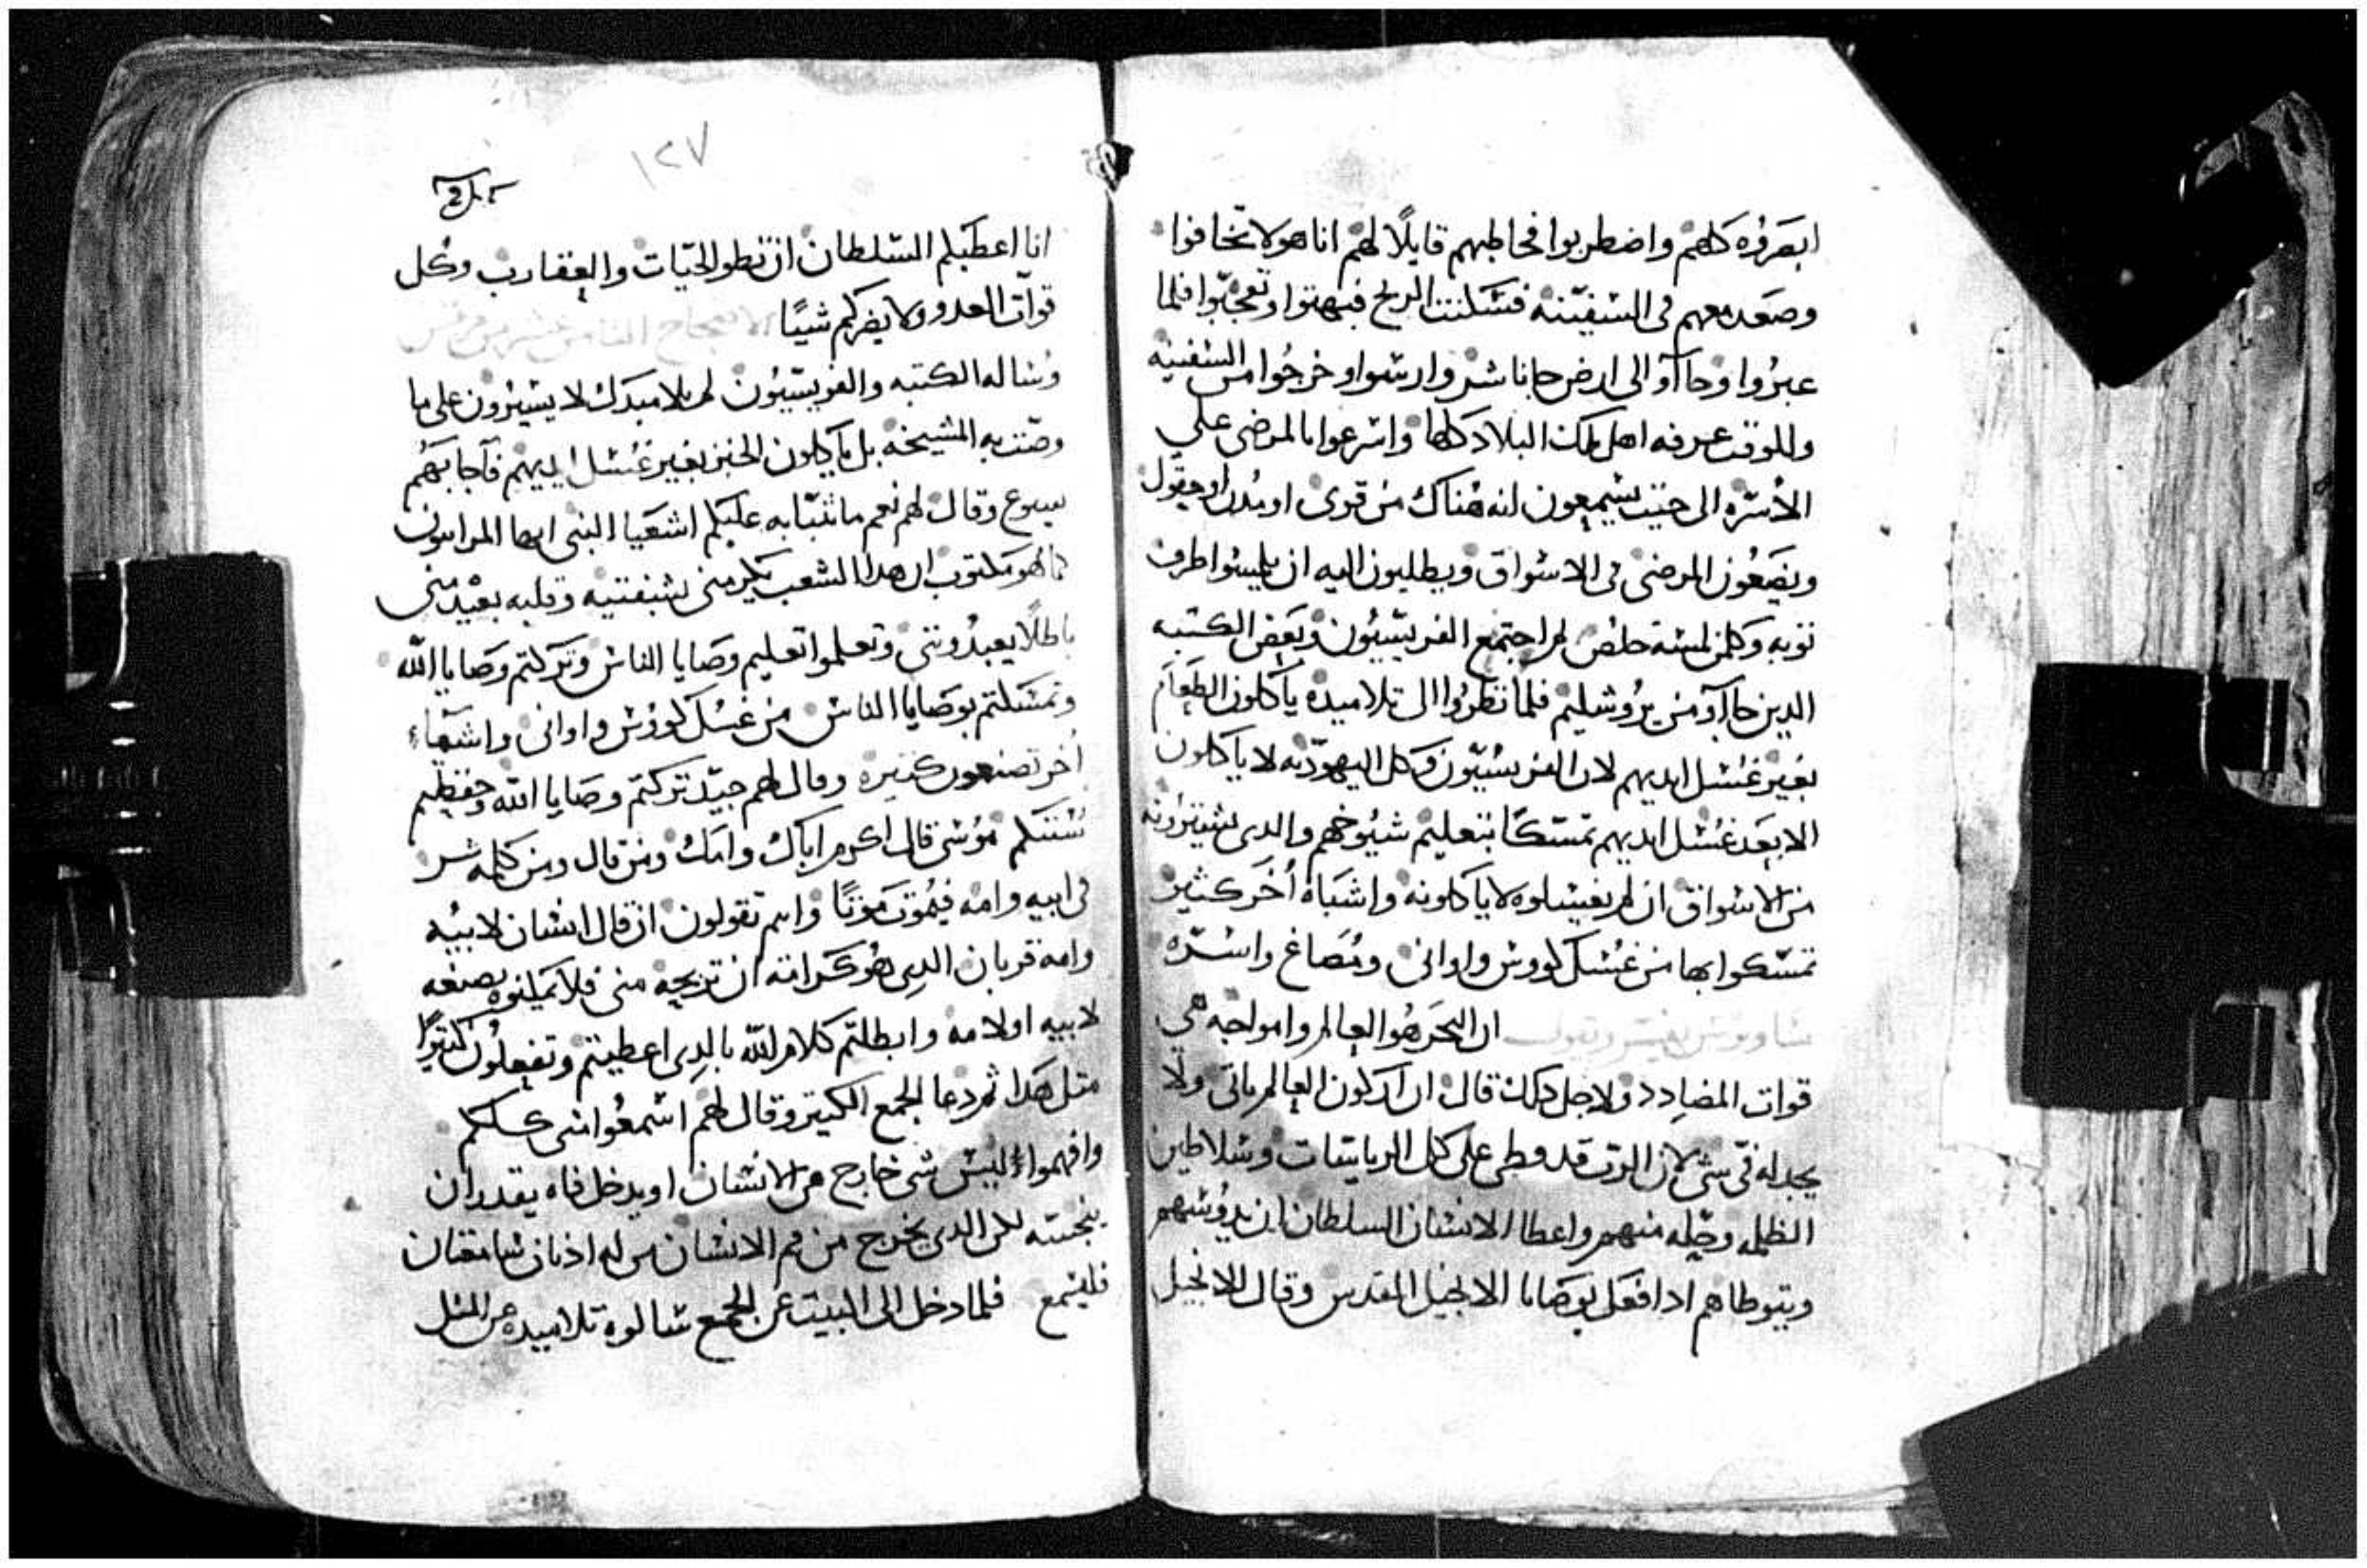 ابصروه كلهم واضطربوا فخاطبهم قايلًا لهم انا هو لا تخافوا
وصعد معهم في السفينه فسكنت الريح فبهتوا وتعجّبوا فلما
عبروا وجاآوا الى ارض جاناشر وارسوا وخرجوا من السفينه
وللوقت عرفه اهل تلك البلاد كلها واسرعوا بالمرضى على
الأسرّه الى حيث يسمعون انه هناك من قرى او مدن او حقول
ويضعون المرضى في الاسواق ويطلبون اليه ان يلمسوا طرف
ثوبه وكلمن لمسه خلص ثم اجتمع الفريسيون وبعض الكتبه
الدين جاآو من يروشليم فلما نظروا الى تلاميده ياكلون الطعام
بغير غسل ايديهم لان الفريسيون وكل اليهوديه لا ياكلون
الا بعد غسل ايديهم تمسّكًا بتعليم شيوخهم والدي يشترونه
من الاسواق ان لم يغسلوه لا ياكلونه واشياة أخر كثير
تمسّكوا بها من غسل كووس واواني ومصاغ واسرّه
ساويرس يفسر ويقول ان البحر هو العالم وامواجه هي
قوات المضادد ولاجل دلك قال ان اركون العالم ياتي ولا
يجد له فيّ شي لان الرب قد وطى على كل الرياسات وسلاطين
الظلمه وحِله منهم واعطا الانسان السلطان ان يدوسهم
ويتوطاهم ادا فعل بوصايا الانجيل المقدس وقال الانجيل
١٢٧
انا اعطيكم السلطان ان تطو الحيّات والعقارب وكل
قوات العدو ولا يضركم شيًا الاصحاح الثامن عشر من مرقس
وساله الكتبه والفريسيون لم تلاميدك لا يسيرون على ما
وصّت به المشيخه بل ياكلون الخبز بغير غسل ايديهم فاجابهم
يسوع وقال لهم نعم ما تنبّا به عليكم اشعيا النبي ايها المراييون
كما هو مكتوب ان هدا الشعب يكرمني بشفتيه وقلبه بعيد مني
باطلًا يعبدونني وتعلموا تعليم وصايا الناس وتركتم وصايا الله
وتمسكتم بوصايا الناس من غسل كووس واواني واشياء
أخر تصنعون كثيره وقال لهم جيّد تركتم وصايا الله وحفظتم
سنتكم موسى قال اكرم اباك وامك ومن قال ومن كلمه شر
في ابيه وامه فيموت موتًا وانتم تقولون ان قال انسان لابيه
وامه قربان الدي هو كرامته ان تربحه مني فلا تمكنوه يصنعه
لابيه او لامه وابطلتم كلام الله بالدي اعطيتم وتفعلون كثيرًا
متل هدا ثم دعا الجمع الكتير وقال لهم اسمعوا مني كلكم
وافهموا ليس شي خارج من الانسان او يدخل فاه يقدر ان
ينجسه لكن الدي يخرج من فم الانسان من له اذنان سامعتان
فليسمع فلما دخل الى البيت عن الجمع سالوه تلاميده عن المثل